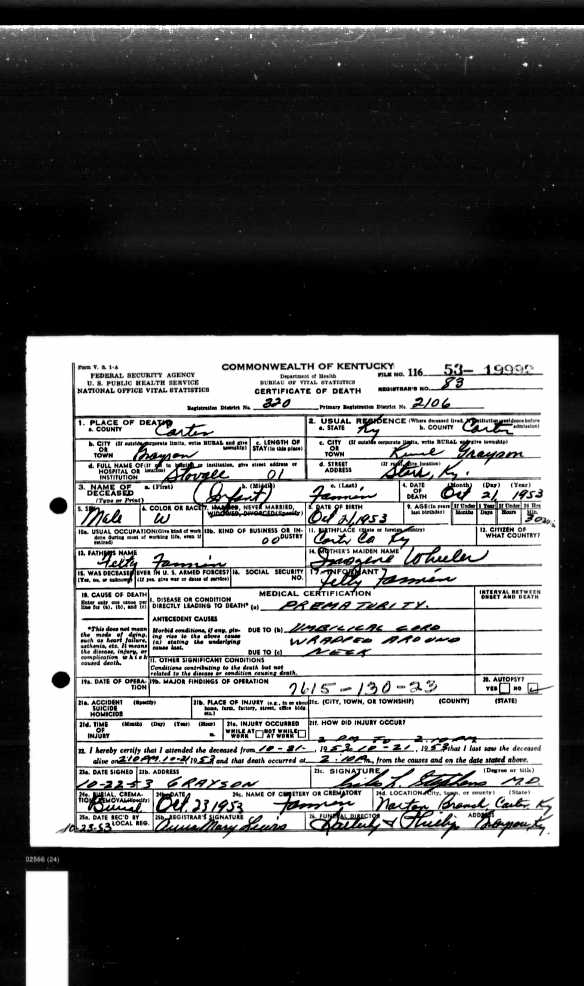 Form V. S. 1-A
FEDERAL SECURITY AGENCY
U. S. PUBLIC HEALTH SERVICE
NATIONAL OFFICE VITAL STATISTICS
COMMONWEALTH OF KENTUCKY
Department of Health
BUREAU OF VITAL STATISTICS
CERTIFICATE OF DEATH
FILE NO. 116 53-
REGISTRAR'S NO. 83
Registration District No. 320 Primary Registration District No. 2106
1. PLACE OF DEATH
a. COUNTY Carter
b. CITY (If outside corporate limits, write RURAL and give township)
OR
TOWN Grayson
c. LENGTH OF STAY (in this place)
d. FULL NAME OF (If not in hospital or institution, give street address or
HOSPITAL OR
INSTITUTION Stovall 01
2. USUAL RESIDENCE (Where deceased lived. If institution: residence before admission)
a. STATE Ky b. COUNTY Carter
c. CITY (If outside corporate limits, write RURAL and give township)
OR
TOWN Rural Grayson
d. STREET ADDRESS (If rural, give location)
Stark, Ky.
3. NAME OF DECEASED
(Type or Print)
a. (First) b. (Middle) c. (Last)
(Infant) Fannin
4. DATE OF DEATH (Month) (Day) (Year)
Oct 21, 1953
5. SEX Male
6. COLOR OR RACE W
7. MARRIED, NEVER MARRIED, WIDOWED, DIVORCED (Specify)
8. DATE OF BIRTH Oct 21, 1953
9. AGE (In years last birthday) If Under 1 Year Months Days If Under 24 Hrs Hours Min.
10a. USUAL OCCUPATION (Give kind of work done during most of working life, even if retired)
10b. KIND OF BUSINESS OR INDUSTRY 00
11. BIRTHPLACE (State or foreign country)
Carter Co Ky
12. CITIZEN OF WHAT COUNTRY?
13. FATHER'S NAME
Felty Fannin
14. MOTHER'S MAIDEN NAME
Imogene Wheeler
15. WAS DECEASED EVER IN U. S. ARMED FORCES?
(Yes, no, or unknown) (If yes, give war or dates of service)
16. SOCIAL SECURITY NO.
17. INFORMANT
Felty Fannin
18. CAUSE OF DEATH
Enter only one cause per line for (a), (b), and (c)
*This does not mean the mode of dying, such as heart failure, asthenia, etc. It means the disease, injury, or complication which caused death.
MEDICAL CERTIFICATION
INTERVAL BETWEEN ONSET AND DEATH
I. DISEASE OR CONDITION
DIRECTLY LEADING TO DEATH* (a) PREMATURITY.
ANTECEDENT CAUSES
Morbid conditions, if any, giving rise to the above cause (a) stating the underlying cause last.
DUE TO (b) UMBILICAL CORD
WRAPPED AROUND
DUE TO (c) NECK
II. OTHER SIGNIFICANT CONDITIONS
Conditions contributing to the death but not related to the disease or condition causing death.
19a. DATE OF OPERATION
19b. MAJOR FINDINGS OF OPERATION
7615-130-23
20. AUTOPSY?
YES NO
21a. ACCIDENT SUICIDE HOMICIDE (Specify)
21b. PLACE OF INJURY (e.g., in or about home, farm, factory, street, office bldg. etc.)
21c. (CITY, TOWN, OR TOWNSHIP) (COUNTY) (STATE)
21d. TIME OF INJURY (Month) (Day) (Year) (Hour) m.
21e. INJURY OCCURRED
WHILE AT WORK NOT WHILE AT WORK
21f. HOW DID INJURY OCCUR?
2 PM TO 2.10 PM
22. I hereby certify that I attended the deceased from 10-21-, 1953, 10-21, 1953 that I last saw the deceased
alive on 2:10 PM 10-21 1953 and that death occurred at 2:10 P.m., from the causes and on the date stated above.
23a. DATE SIGNED 10-22-53
23b. ADDRESS GRAYSON
23c. SIGNATURE (Degree or title) M.D.
24a. BURIAL, CREMATION, REMOVAL (Specify) Burial
24b. DATE Oct. 23 1953
24c. NAME OF CEMETERY OR CREMATORY Fannin
24d. LOCATION (City, town, or county) (State)
Norton Branch, Carter, Ky
25a. DATE REC'D BY LOCAL REG. 10-23-53
25b. REGISTRAR'S SIGNATURE Anna Mary Lewis
26. FUNERAL DIRECTOR ADDRESS
Grayson Ky.
02566 (24)